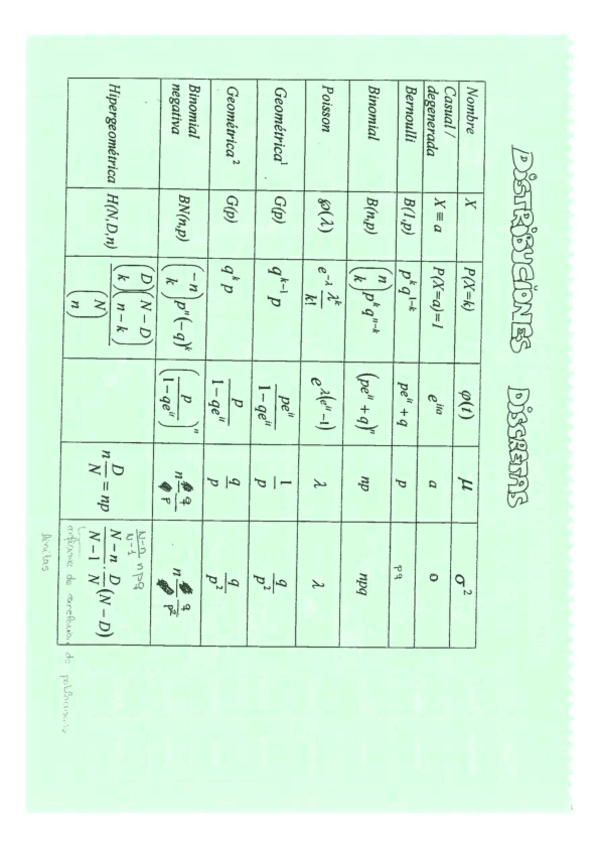 DISTRIBUCIONES DISCRETAS
Nombre X P(X=k) φ(t) μ σ²
Casual / degenerada X ≡ a P(X=a)=1 e^{ita} a 0
Bernoulli B(1,p) p^k q^{1-k} pe^{it} + q p pq
Binomial B(n,p) \binom{n}{k} p^k q^{n-k} (pe^{it} + q)^n np npq
Poisson ℘(λ) e^{-λ} \frac{λ^k}{k!} e^{λ(e^{it}-1)} λ λ
Geométrica¹ G(p) q^{k-1} p \frac{pe^{it}}{1-qe^{it}} \frac{1}{p} \frac{q}{p²}
Geométrica² G(p) q^k p \frac{p}{1-qe^{it}} \frac{q}{p} \frac{q}{p²}
Binomial negativa BN(n,p) \binom{-n}{k} p^n (-q)^k (\frac{p}{1-qe^{it}})^n n \frac{q}{p} n \frac{q}{p²}
Hipergeométrica H(N,D,n) \frac{\binom{D}{k}\binom{N-D}{n-k}}{\binom{N}{n}} n \frac{D}{N} = np \frac{N-n}{N-1} npq
\frac{N-n}{N-1} · n \frac{D}{N} (N-D)
de
de poblaciones
finitas